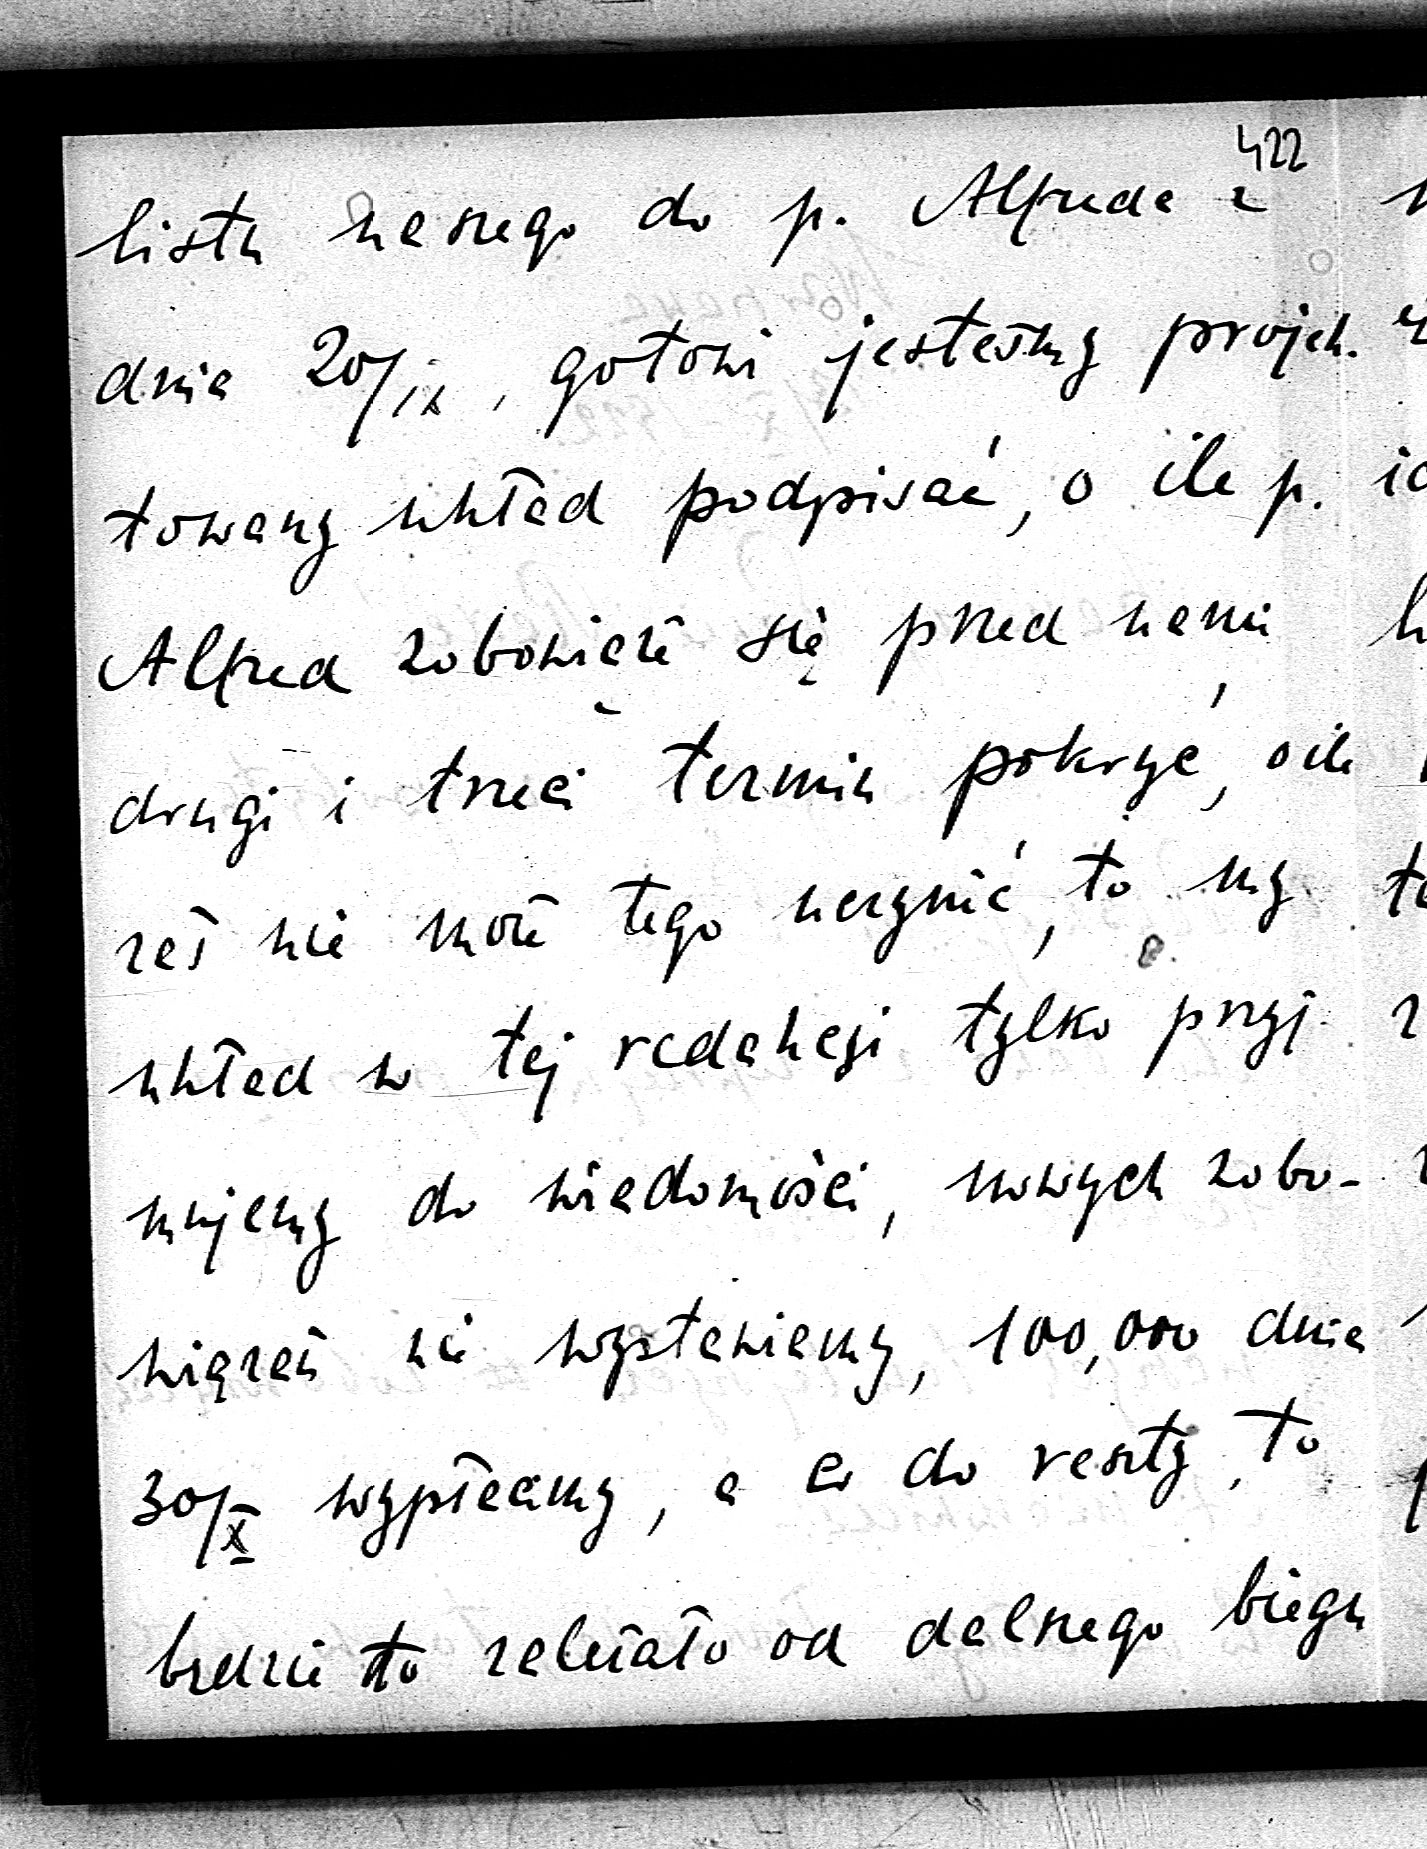 422
listu naszego do p. Alfreda z
dnia 20/IX, gotowi jesteśmy projek.
towany układ podpisać, o ile p.
Alfred zobowiąże się przed nami
drugi i trzeci termin pokryć, o ile
zaś nie może tego uczynić, to my
układ w tej redakcji tylko przyj.
mujemy do wiadomości, nowych zobo-
wiązań nie wystawiamy, 100,000 dnia
30/X wypłacimy, a co do reszty, to
będzie to zależało od dalszego biegu